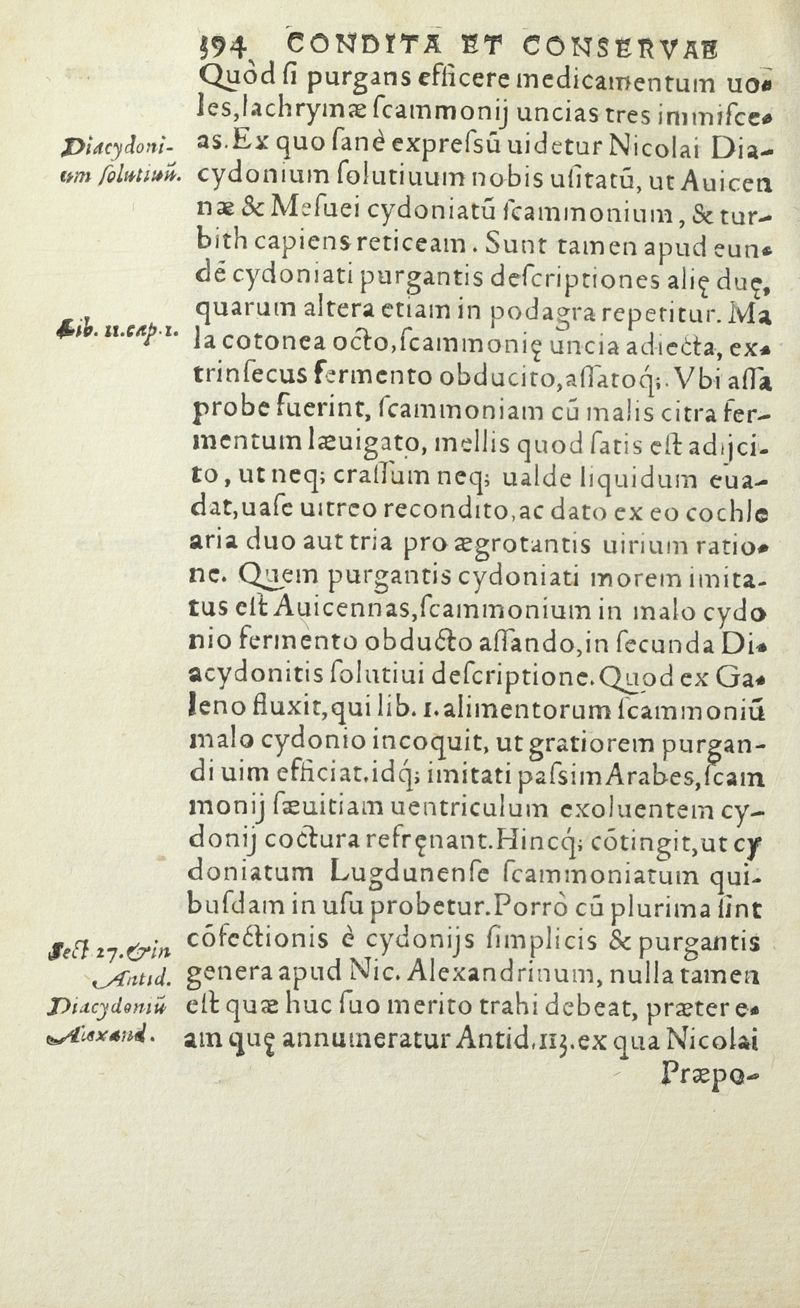 394 CONDITA ET CONSERVAE
Quòd ſi purgans efficere medicamentum uo-
les, lachrymæ ſcammonij uncias tres immiſce-
Diacydoni-
as. Ex quo ſanè expreſsū uidetur Nicolai Dia-
um ſolutiuū.
cydonium ſolutiuum nobis uſitatū, ut Auicen
næ & Meſuei cydoniatū ſcammonium, & tur-
bith capiens reticeam. Sunt tamen apud eun-
dē cydoniati purgantis deſcriptiones alię duę,
quarum altera etiam in podagra repetitur. Ma
Lib. 11. cap. 1.
la cotonea octo, ſcammonię uncia adiecta, ex-
trinſecus fermento obducito, aſſatoq́;. Vbi aſſa
probe fuerint, ſcammoniam cū malis citra fer-
mentum læuigato, mellis quod ſatis eſt adijci-
to, ut neq; craſſum neq; ualde liquidum eua-
dat, uaſe uitreo recondito, ac dato ex eo cochle
aria duo aut tria pro ægrotantis uirium ratio-
ne. Quem purgantis cydoniati morem imita-
tus eſt Auicennas, ſcammonium in malo cydo
nio fermento obducto aſſando, in ſecunda Di-
acydonitis ſolutiui deſcriptione. Quod ex Ga-
leno fluxit, qui lib. 1. alimentorum ſcammoniū
malo cydonio incoquit, ut gratiorem purgan-
di uim efficiat. idq́; imitati paſsim Arabes, ſcam
monij ſæuitiam uentriculum exoluentem cy-
donij coctura refręnant. Hincq́; cōtingit, ut cy
doniatum Lugdunenſe ſcammoniatum qui-
buſdam in uſu probetur. Porrò cū plurima ſint
Sect 27. & in
cōfectionis è cydonijs ſimplicis & purgantis
Antid.
genera apud Nic. Alexandrinum, nulla tamen
Diacydoniū
eſt quæ huc ſuo merito trahi debeat, præter e-
Alexand.
am quę annumeratur Antid. 113. ex qua Nicolai
Præpo-